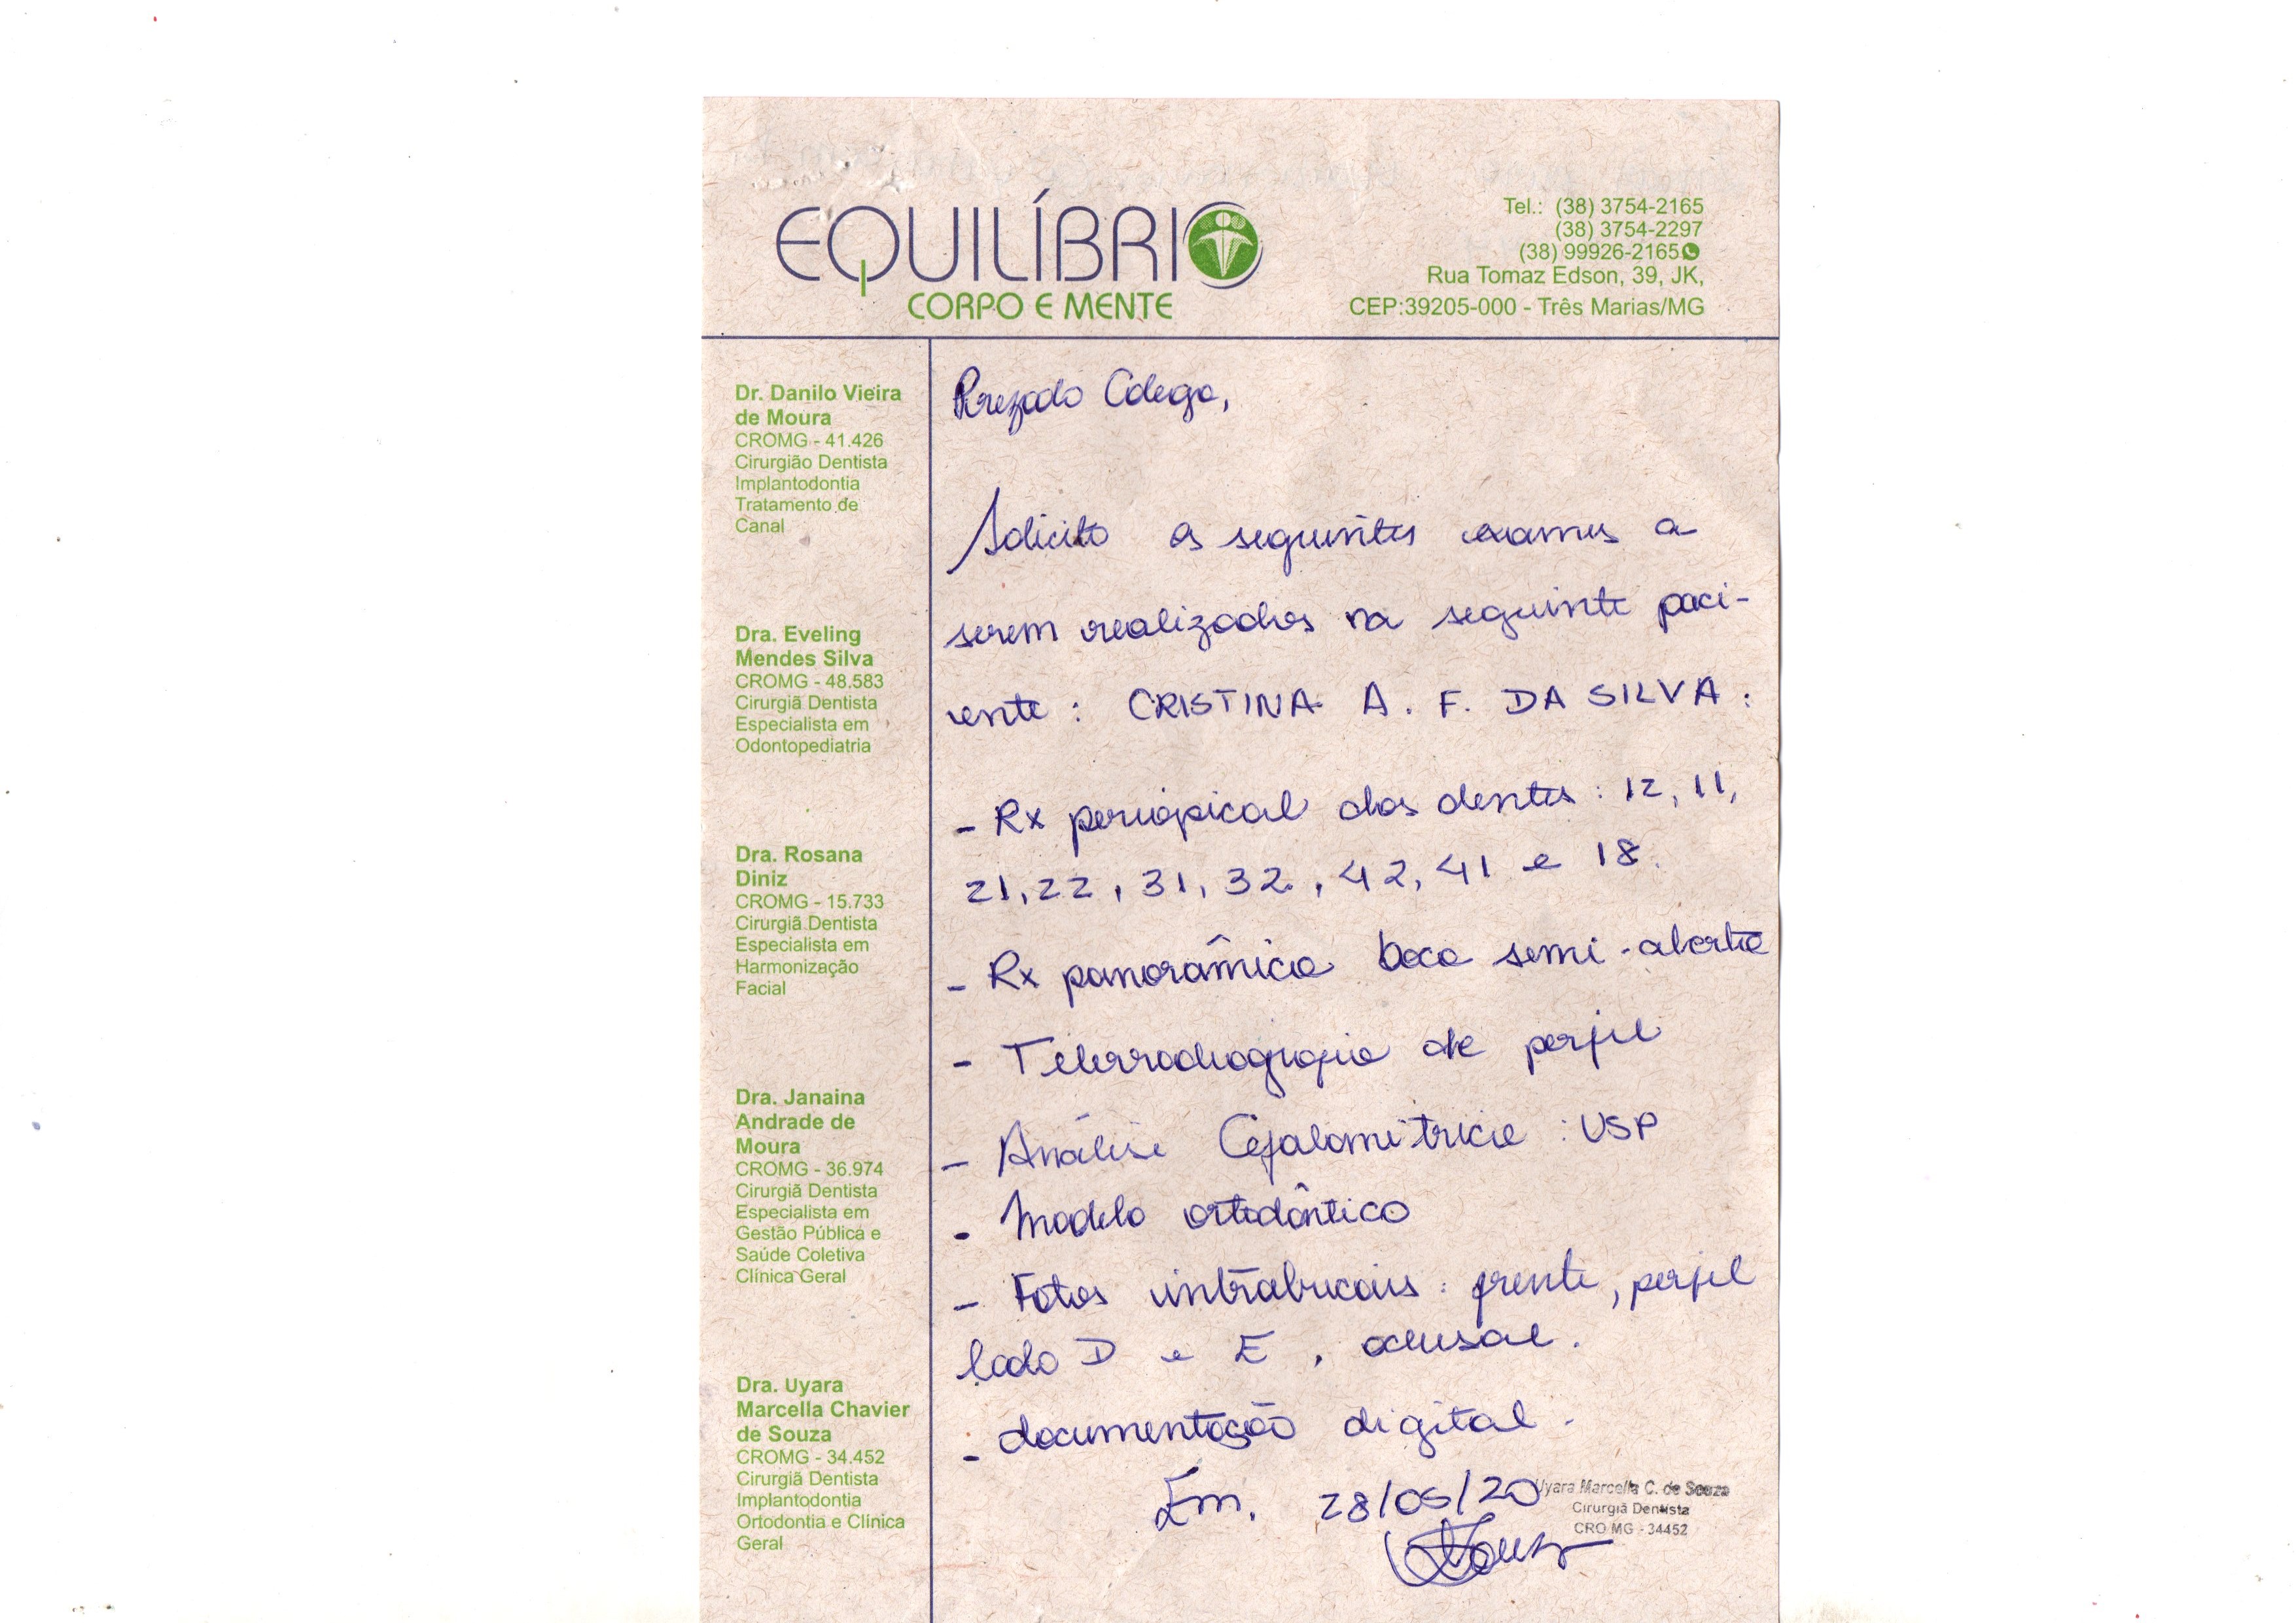 EQUILÍBRIO
CORPO E MENTE
Tel.: (38) 3754-2165
(38) 3754-2297
(38) 99926-2165
Rua Tomaz Edson, 39, JK,
CEP:39205-000 - Três Marias/MG
Dr. Danilo Vieira
de Moura
CROMG - 41.426
Cirurgião Dentista
Implantodontia
Tratamento de
Canal
Dra. Eveling
Mendes Silva
CROMG - 48.583
Cirurgiã Dentista
Especialista em
Odontopediatria
Dra. Rosana
Diniz
CROMG - 15.733
Cirurgiã Dentista
Especialista em
Harmonização
Facial
Dra. Janaina
Andrade de
Moura
CROMG - 36.974
Cirurgiã Dentista
Especialista em
Gestão Pública e
Saúde Coletiva
Clínica Geral
Dra. Uyara
Marcella Chavier
de Souza
CROMG - 34.452
Cirurgiã Dentista
Implantodontia
Ortodontia e Clínica
Geral
Prezado Colega,
Solicito os seguintes exames a
serem realizados na seguinte paci-
ente : CRISTINA A. F. DA SILVA :
- Rx periapical dos dentes : 12, 11,
21, 22, 31, 32, 42, 41 e 18.
- Rx panorâmica boca semi-aberta
- Telerradiografia de perfil
- Análise Cefalométrica : USP
- Modelo ortodôntico
- Fotos intrabucais : frente, perfil
lado D e E, oclusal.
- documentação digital.
Em, 28/05/20
Uyara Marcella C. de Souza
Cirurgiã Dentista
CRO MG - 34452